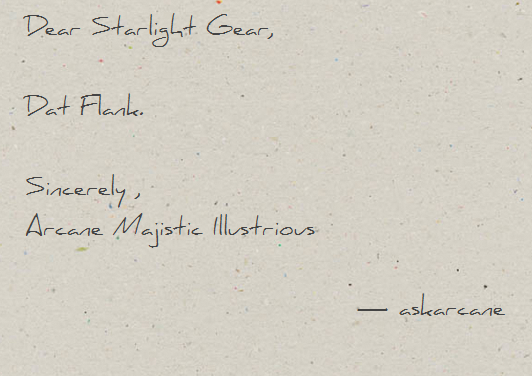 Dear Starlight Gear,
Dat Flank.
Sincerely,
Arcane Majistic Illustrious
— askarcane